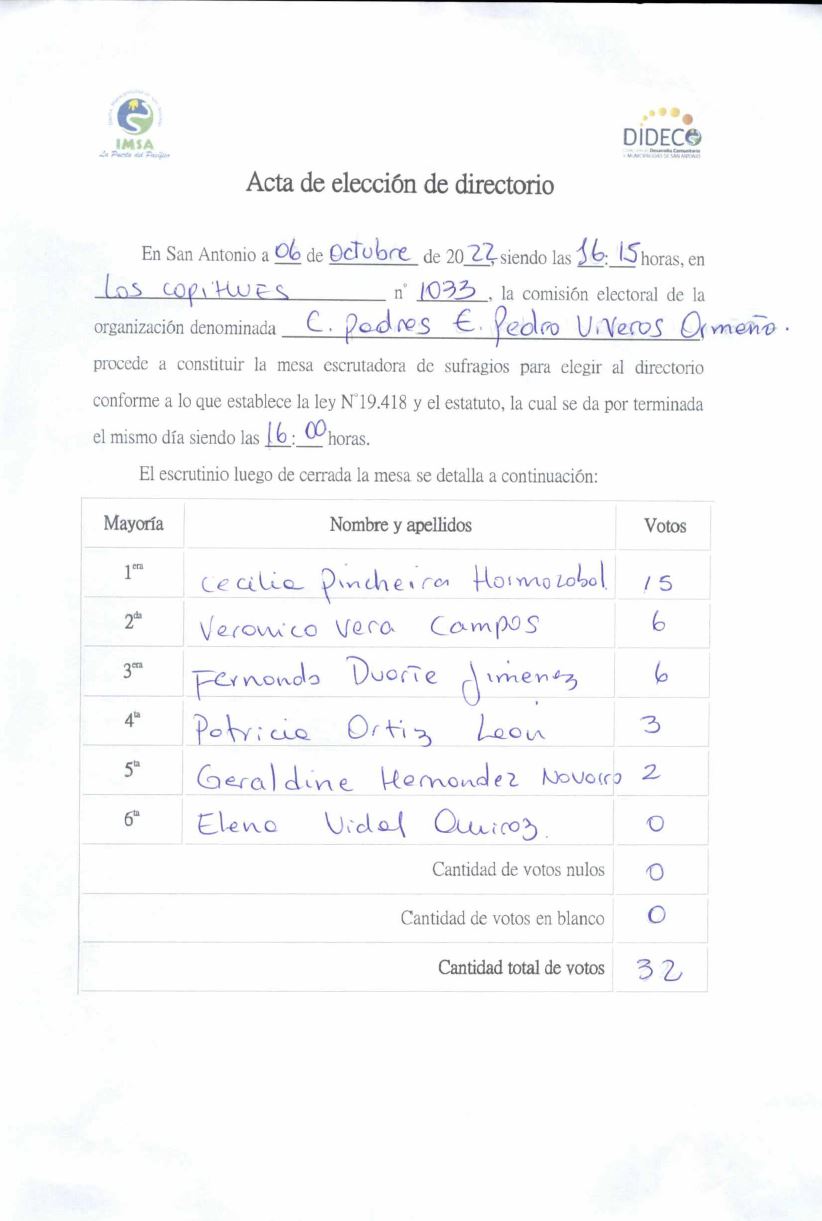 IMSA
La Puerta del Pacífico
DIDECO
Desarrollo Comunitario
MUNICIPALIDAD DE SAN ANTONIO
Acta de elección de directorio
En San Antonio a 06 de Octubre de 2022, siendo las 16:15 horas, en
Los copiHUES n° 1033, la comisión electoral de la
organización denominada C. padres E. Pedro Viveros Ormeño.
procede a constituir la mesa escrutadora de sufragios para elegir al directorio
conforme a lo que establece la ley N°19.418 y el estatuto, la cual se da por terminada
el mismo día siendo las 16:00 horas.
El escrutinio luego de cerrada la mesa se detalla a continuación:
Mayoría Nombre y apellidos Votos
1era Cecilia Pincheira Hormazabal 15
2da Veronica Vera Campos 6
3era Fernando Duarte Jimenez 6
4ta Patricia Ortiz Leon 3
5ta Geraldine Hernandez Navarro 2
6ta Elena Vidal Quiroz. 0
Cantidad de votos nulos 0
Cantidad de votos en blanco 0
Cantidad total de votos 32